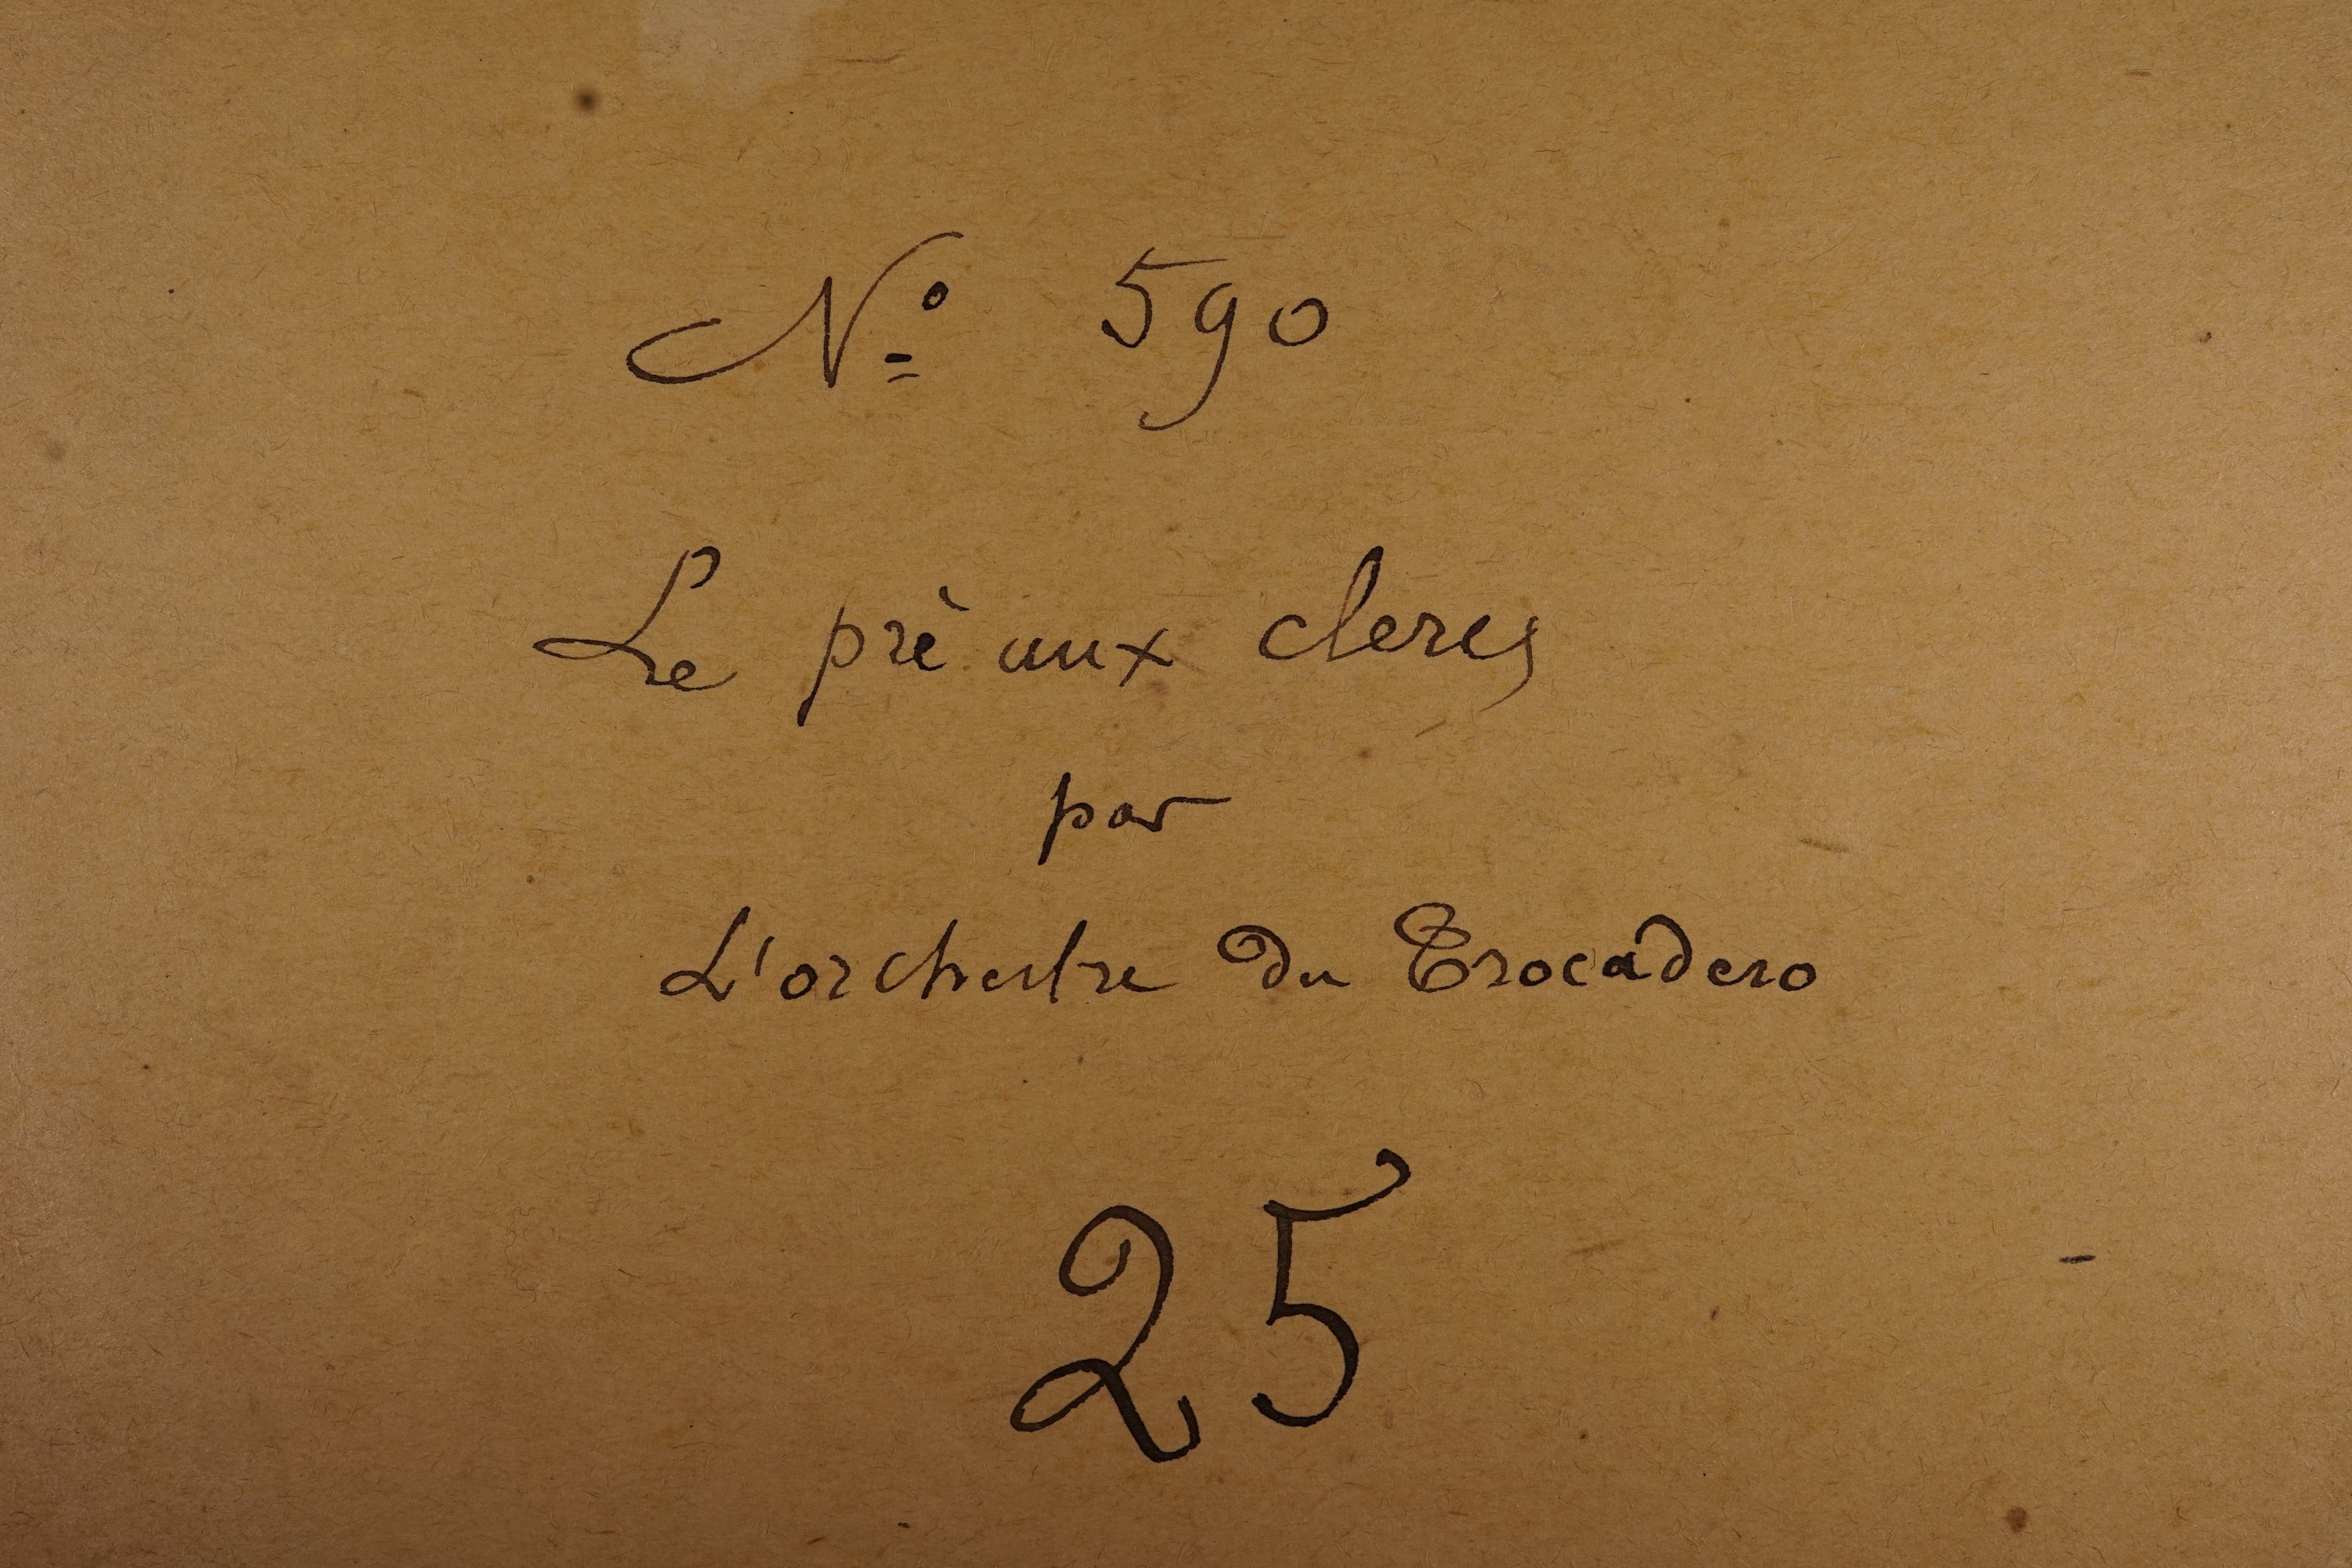 Nº 590
Le prè aux clercs
par
L'orchestre du Trocadero
25